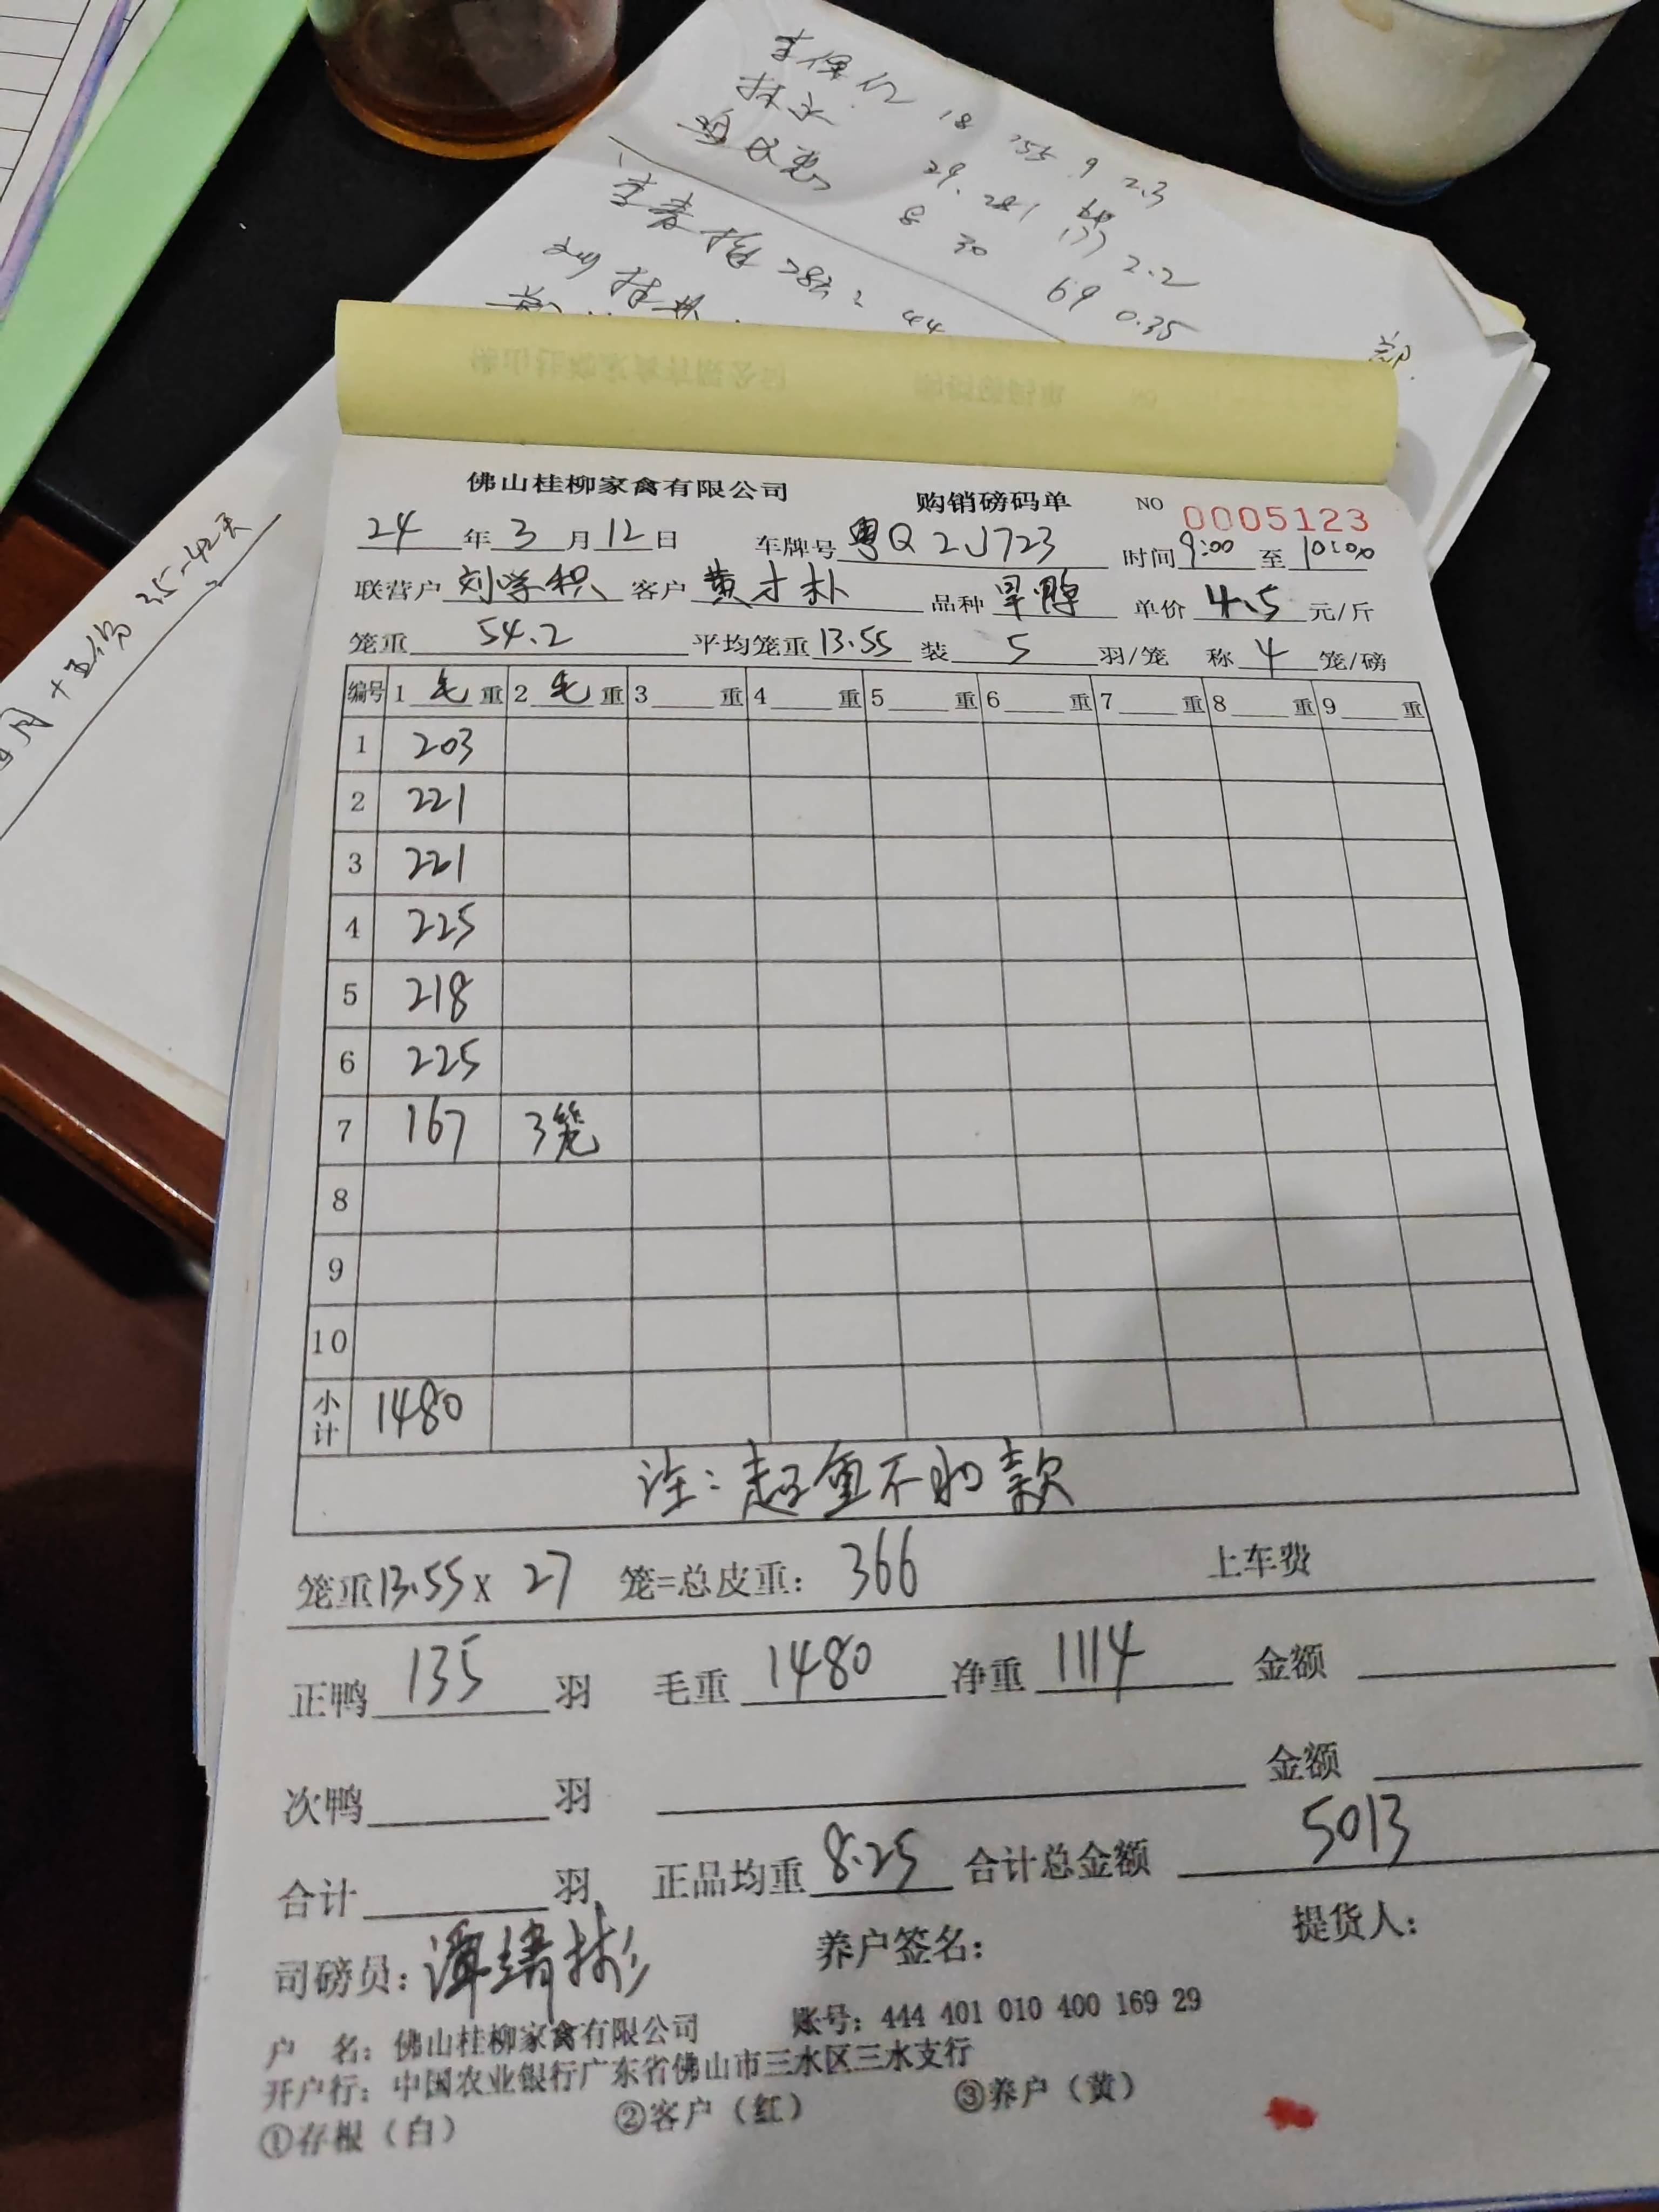 18 755 9 2.3
29. 281 177 2.2
8 30 69 0.35
44
35-42天
佛山桂柳家禽有限公司 购销磅码单 NO 0005123
24年3月12日 车牌号 粤Q 2J723 时间 9:00 至 10:00
联营户 刘学积 客户 黄才朴 品种 旱鸭 单价 4.5 元/斤
笼重 54.2 平均笼重 13.55 装 5 羽/笼 称 4 笼/磅
编号 1 毛 重 2 毛 重 3 重 4 重 5 重 6 重 7 重 8 重 9 重
1 203
2 221
3 221
4 225
5 218
6 225
7 167 3笼
8
9
10
小计 1480
注:超重不加款
笼重 13.55 x 27 笼=总皮重: 366 上车费
正鸭 135 羽 毛重 1480 净重 1114 金额
次鸭 羽 金额
合计 羽 正品均重 8.25 合计总金额 5013
司磅员: 谭靖彬 养户签名: 提货人:
户 名: 佛山桂柳家禽有限公司 账号: 444 401 010 400 169 29
开户行: 中国农业银行广东省佛山市三水区三水支行
①存根(白) ②客户(红) ③养户(黄)